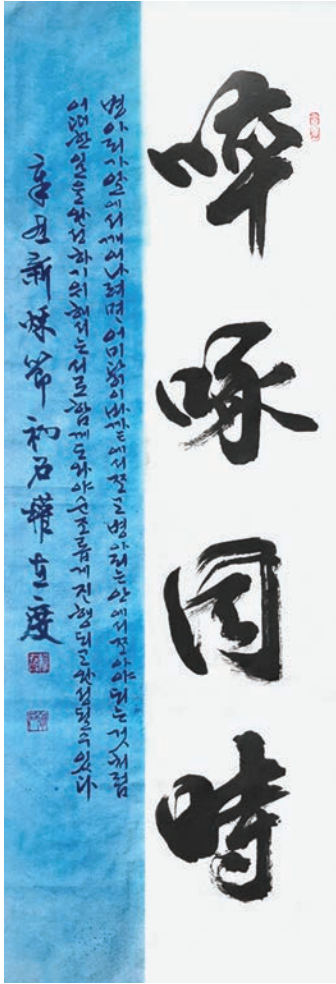 啐啄同時
병아리가 알에서 깨어나려면 어미닭이 바깥에서 쪼고 병아리는 안에서 쪼아야 되는 것처럼
어떠한 일을 완성하기 위해서는 서로 함께 도와야 순조롭게 진행되고 완성될 수 있다
辛丑新秋節 初石 權立度